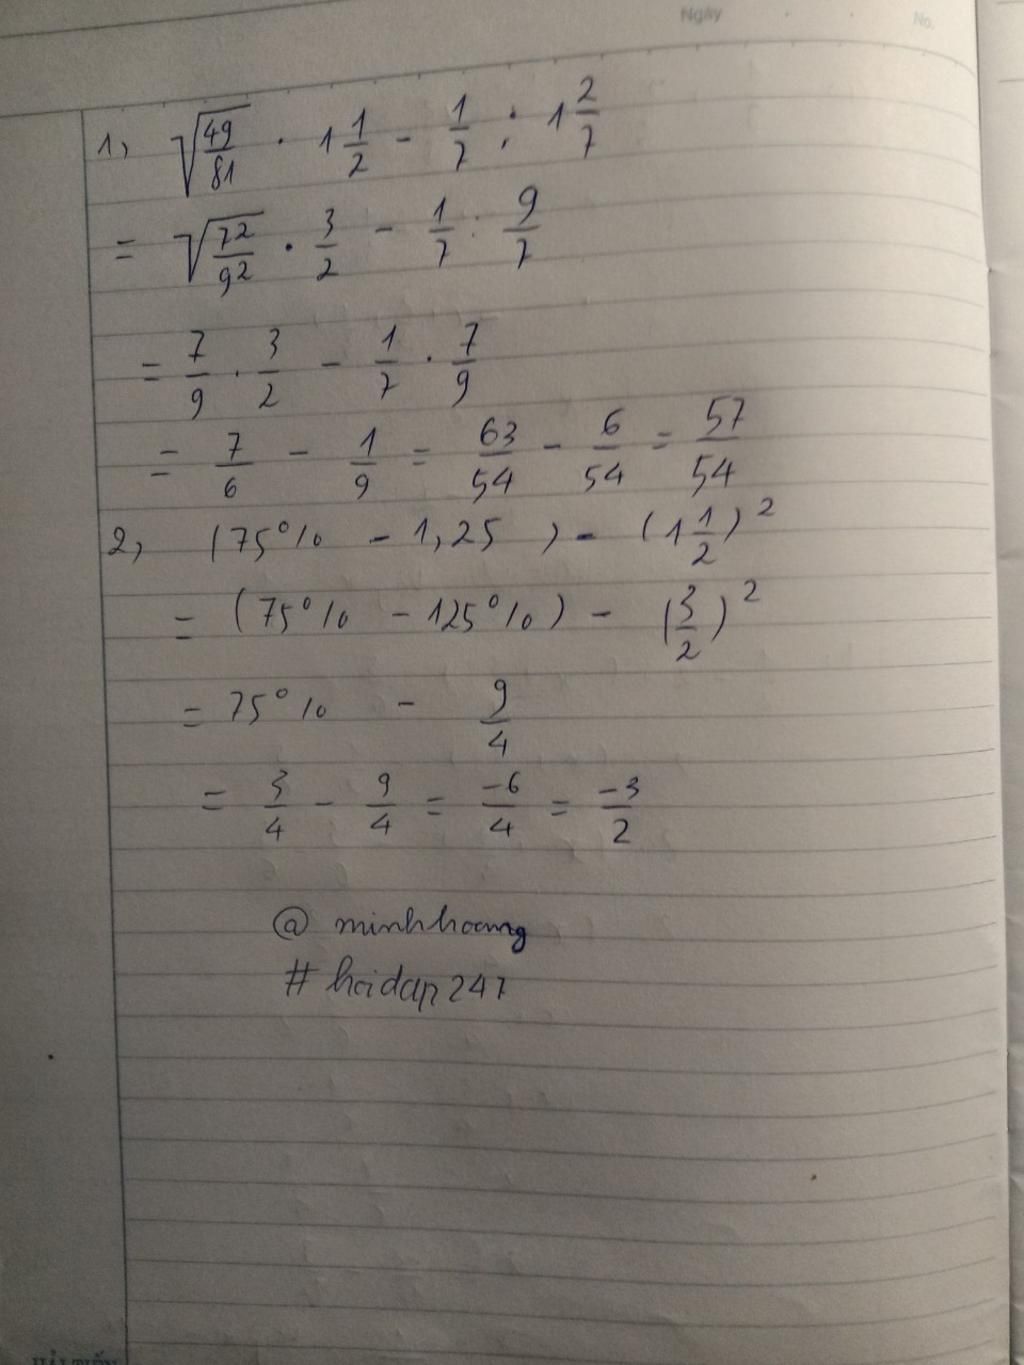 Ngày No.
1, √(49/81) · 1 1/2 - 1/7 : 1 2/7
= √(7²/9²) · 3/2 - 1/7 : 9/7
= 7/9 · 3/2 - 1/7 · 7/9
= 7/6 - 1/9 = 63/54 - 6/54 = 57/54
2, (75% - 1,25) - (1 1/2)²
= (75% - 125%) - (3/2)²
= 75% - 9/4
= 3/4 - 9/4 = -6/4 = -3/2
@ minhhoang
# hoidap247